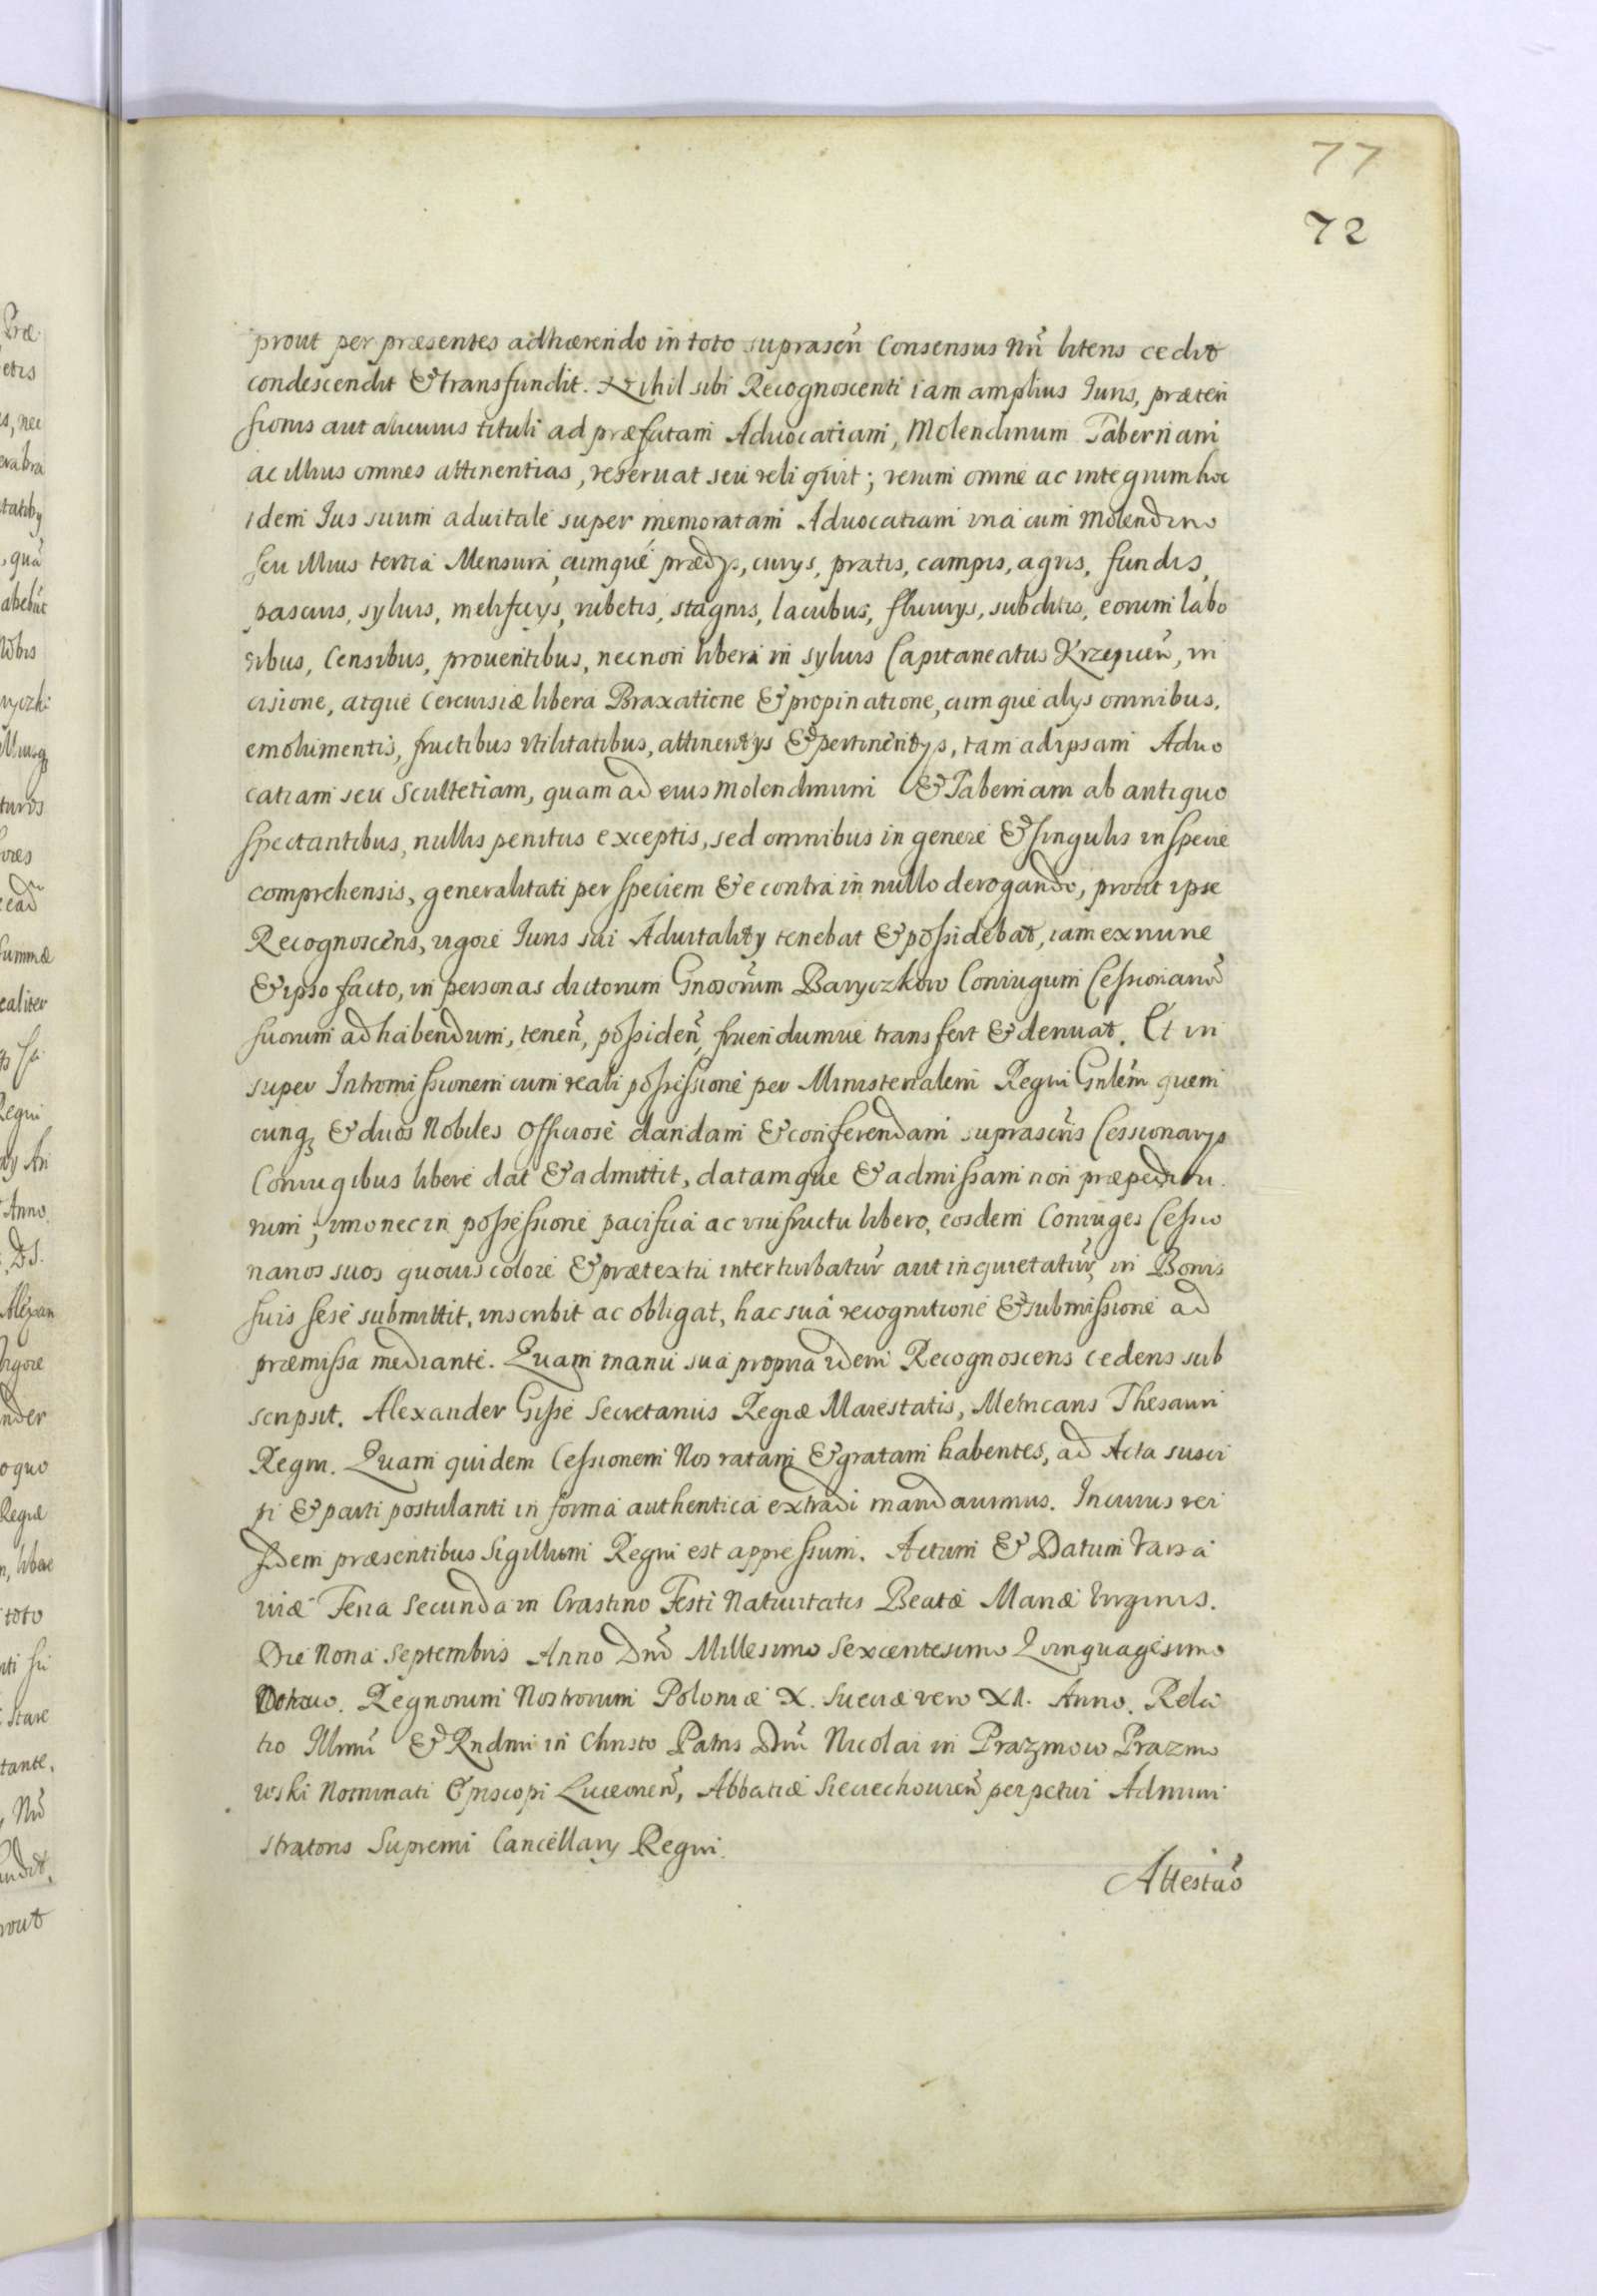 77
72
prout per præsentes adhærendo in toto suprascri͂ Consensus Nri͂ literis cedit
condescendit & transfundit. Nihil sibi Recognoscenti iam amplius Iuris, præten
sionis aut alicuius tituli ad præfatam Aduocatiam, Molendinum Tabernam
ac illius omnes attinentias, reseruat seu reliquit; verum omne ac integrum hoc
idem Ius suum aduitale super memoratam Aduocatiam vna cum Molendino
seu illius tertia Mensura, cumque prædijs, curijs, pratis, campis, agris, fundis,
pascuis, syluis, mellificijs, rubetis, stagnis, lacubus, fluuijs, subditis, eorum labo
ribus, Censibus, prouentibus, necnon libera in syluis Capitaneatus Krzepicen͂, in
cisione, atque Cereuisiæ libera Braxatione & propinatione, cumque alijs omnibus,
emolumentis, fructibus vtilitatibus, attinentijs & pertinentijs, tam ad ipsam Aduo
catiam seu Scultetiam, quam ad eius Molendinum & Tabernam ab antiquo
spectantibus, nullis penitus exceptis, sed omnibus in genere & singulis in specie
comprehensis, generalitati per speciem & e contra in nullo derogando, prout ipse
Recognoscens, vigore Iuris sui Aduitalitij tenebat & possidebat, iam ex nunc
& ipso facto, in personas dictorum Gnosorum Baryczkow Coniugum Cessionario͂
suorum ad habendum, tenen͂, possiden͂, fruendumue transfert & deriuat. Et in
super Intromissionem cum reali possessione per Ministerialem Regni Gnlem͂ quem
cunq3 & duos Nobiles officiose dandam & conferendam suprascri͂s Cessionarijs
Coniugibus libere dat & admittit, datamque & admissam non præpeditu
rum; imo nec in possessione pacifica ac vsufructu libero, eosdem Coniuges Cessio
narios suos quouis colore & prætextu interturbatur͂ aut inquietatur͂, in Bonis
suis sese submittit, inscribit ac obligat, hac sua recognitione & submissione ad
præmissa mediante. Quam manu sua propria idem Recognoscens cedens sub
scripsit. Alexander Gisse Secretarius Regiæ Maiestatis, Metricans Thesauri
Regni. Quam quidem Cessionem Nos ratam & gratam habentes, ad Acta susci
pi & parti postulanti in forma authentica extradi mandauimus. In cuius rei
fidem præsentibus Sigillum Regni est appressum. Actum & Datum Varsa
uiæ Feria Secunda in Crastino Festi Natiuitatis Beatæ Mariæ Virginis.
Die Nona Septembris Anno Dni͂ Millesimo Sexcentesimo Quinquagesimo
Octauo. Regnorum Nostrorum Poloniæ X. Sueciæ vero XI. Anno. Rela
tio Illmi͂ & Rndmi in Christo Patris Dni͂ Nicolai in Prazmow Prazmo
wski Nominati Episcopi Luceorien͂, Abbatiæ Sieciechouien͂ perpetui Admini
stratoris Supremi Cancellarij Regni.
Attestatio͂